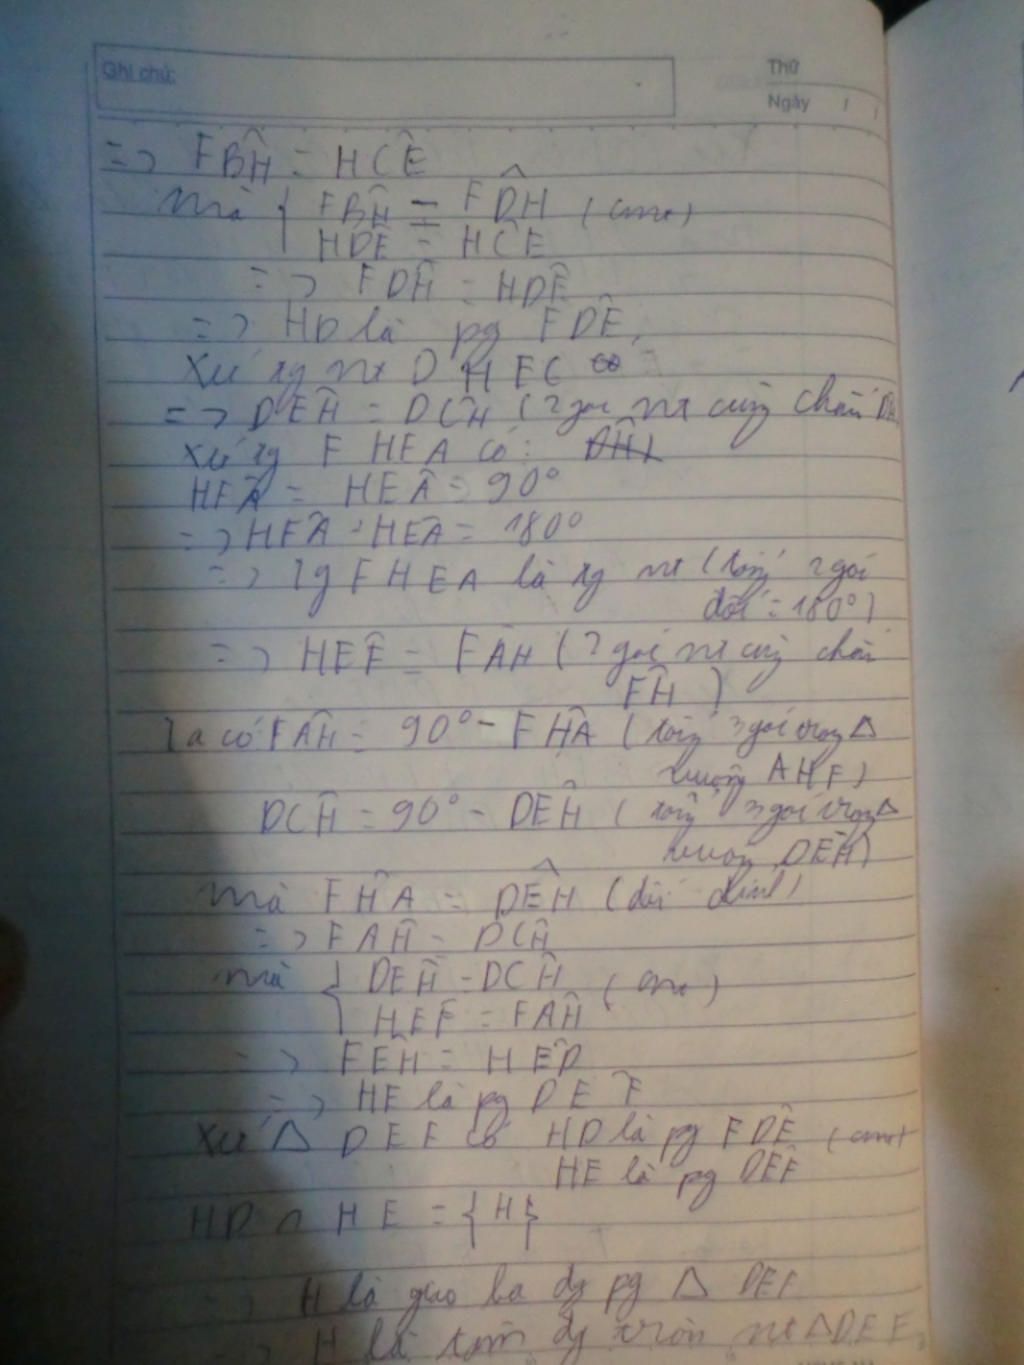 Ghi chú:
Thứ
Ngày / /
=> FBĤ = HCÊ
mà { FBĤ = FD̂H (cmt)
HDÊ = HCÊ
=> FDĤ = HDÊ
=> HD là pg FDÊ
Xét tg nt DHEC
=> DEĤ = DCĤ (2 góc nt cùng chắn DH
Xét tg FHEA có:
HFÂ = HEÂ = 90°
=> HFÂ + HEÂ = 180°
=> Tg FHEA là tg nt (tổng 2 góc
đối = 180°)
=> HEF̂ = FÂH (2 góc nt cùng chắn
FH)
Ta có FAĤ = 90° - FĤA (tổng 3 góc trong Δ
vuông AHF)
DCĤ = 90° - DEĤ (tổng 3 góc trong Δ
vuông DEH)
mà FĤA = DÊH (đối đỉnh)
=> FAĤ = DCĤ
mà { DEĤ = DCĤ (cmt)
HEF̂ = FAĤ
=> FEĤ = HED̂
=> HE là pg DEF̂
Xét Δ DEF có HD là pg FDÊ (cmt)
HE là pg DÊF
HD ∩ HE = {H}
=> H là giao ba đg pg Δ DEF
=> H là tâm đg tròn nt Δ DEF